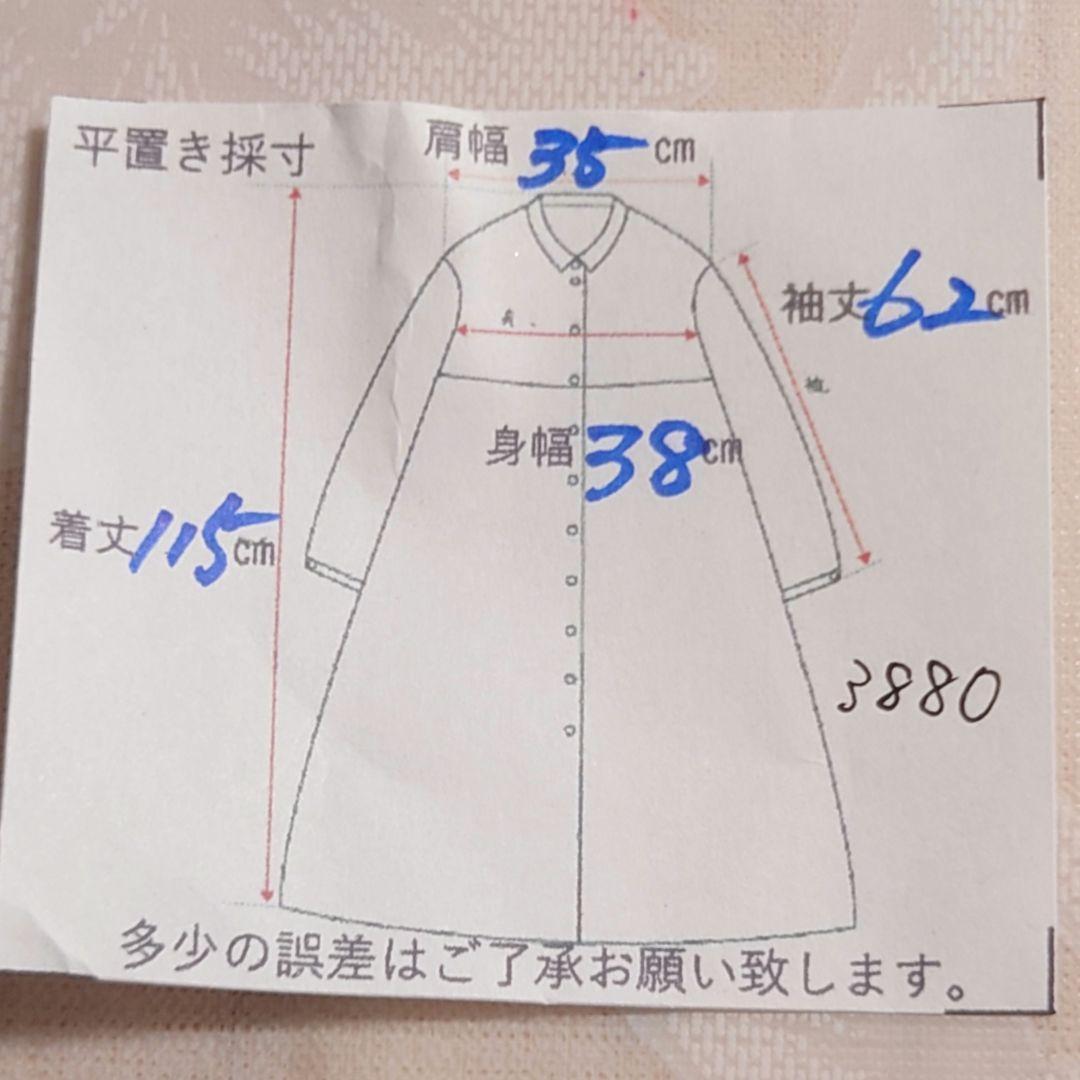 平置き採寸
肩幅 35 cm
袖丈 62 cm
身幅 38 cm
着丈 115 cm
3880
多少の誤差はご了承お願い致します。